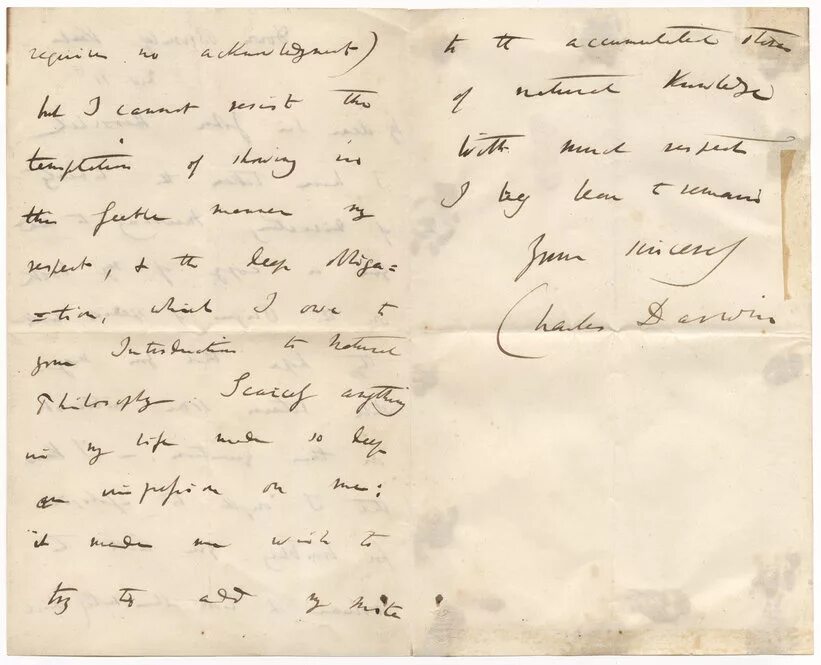 requires no acknowledgment)
but I cannot resist the
temptation of showing in
this feeble manner my
respect, & the deep obliga=
=tion, which I owe to
your Introduction to Natural
Philosophy. Scarcely anything
in my life made so deep
an impression on me:
it made me wish to
try to add my mite
to the accumulated store
of natural knowledge
With much respect
I beg leave to remain
Yours sincerely
Charles Darwin